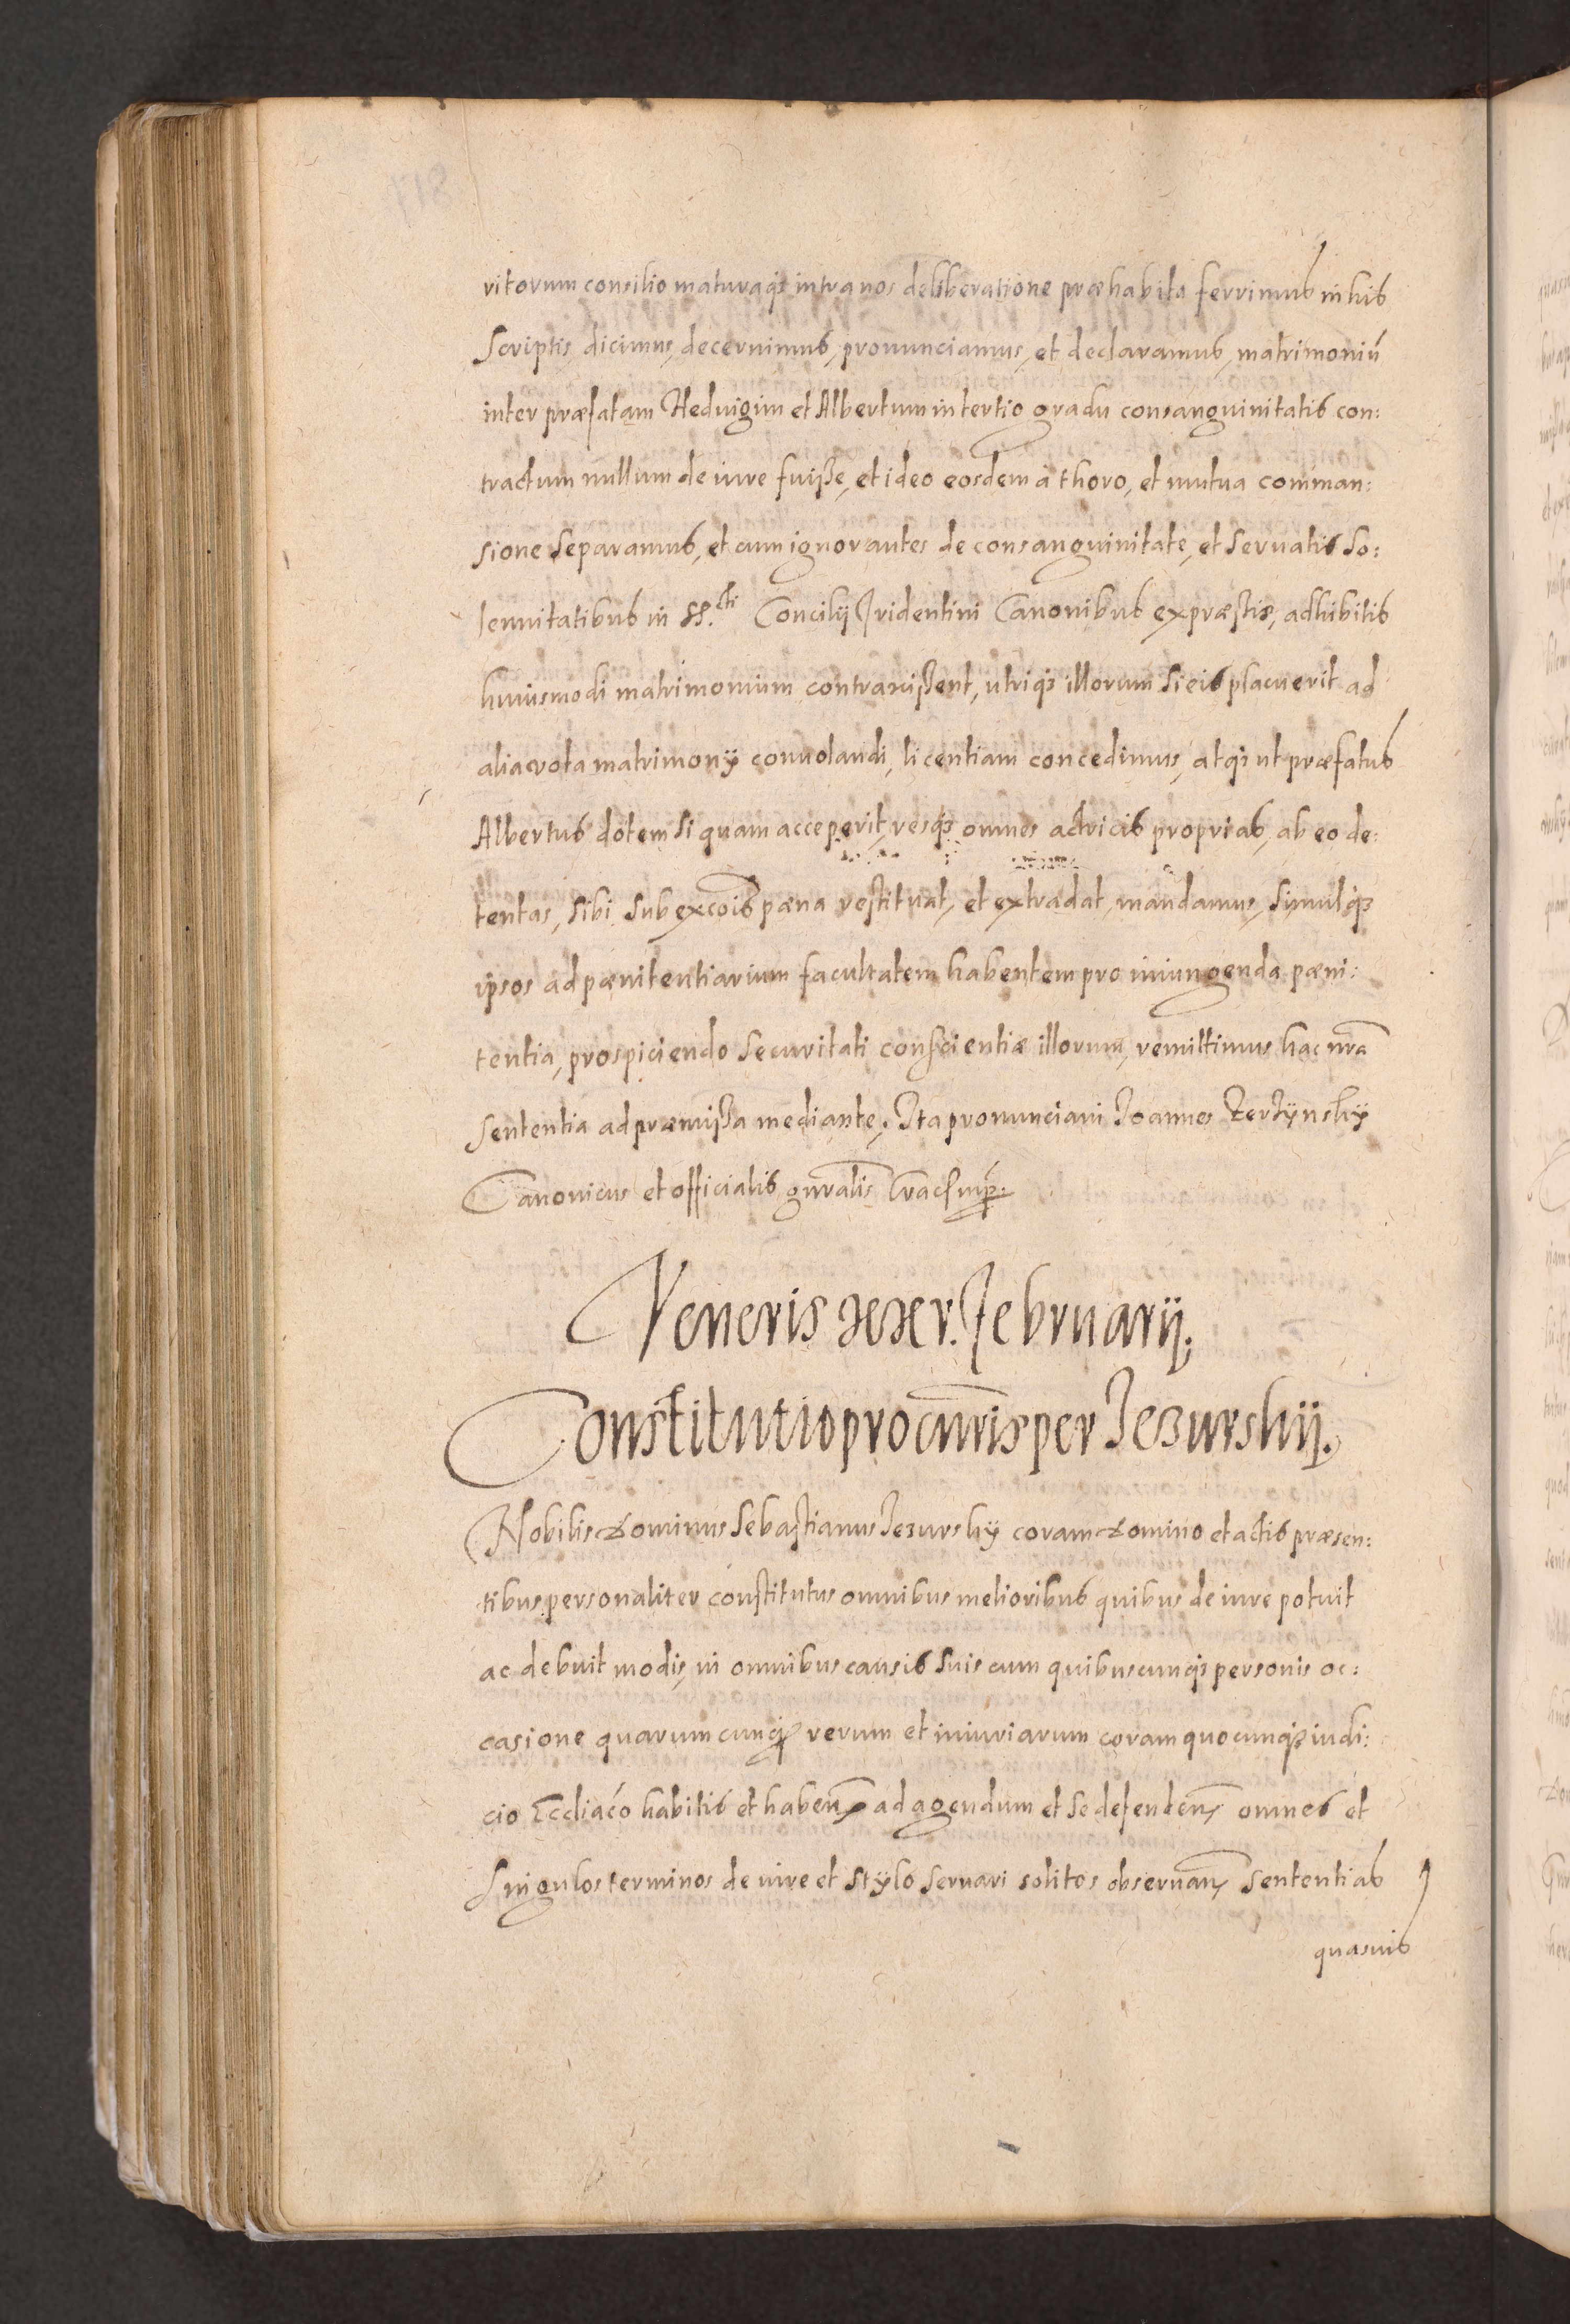 ritorum consilio maturaq₃ intra nos deliberatione præhabita ferrimus in his
Scriptis, dicimus, decernimus, pronunciamus, et declaramus, matrimoniū
inter præfatam Hedvigim et Albertum in tertio gradu consanguinitatis con:
tractum nullum de iure fuiße, et ideo eosdem à thoro, et mutua comman:
sione Separamus, et cum ignorantes de consanguinitate, et Servatis So:
lennitatibus in SS.cti Concilij Tridentini Canonibus expræstis, adhibitis
huiusmodi matrimonium contraxißent, utriq₃ illorum Si eis placuerit ad
alia vota matrimonÿ convolandi, licentiam concedimus, atq₃ ut præfatus
Albertus dotem Si quam acceperit, resq₃ omnes actricis proprias, ab eo de:
tentas, Sibi Sub excois pæna restituat, et extradat, mandamus, Simulq₃
ipsos ad pænitentiarium facultatem habentem pro iniungenda pæni:
tentia, prospiciendo Securitati conscientiæ illorum, remittimus hac nra
Sententia ad præmißa mediante. Ita pronunciavi Joannes
Canonicus et officialis gnralis
Veneris xxv. Februarij.
Constitutio procuris per Jezurskij.
Nobilis Dominus Sebastianus Jezurskÿ coram Domino et actis præsen:
tibus personaliter constitutus omnibus melioribus quibus de iure potuit
ac debuit modis, in omnibus causis Suis cum quibuscunq₃ personis oc:
casione quarumcunq₃ rerum et iniuriarum coram quocunq₃ iudi:
cio Eccliaco habitis et haben ad agendum et Se defenden omnes et
Singulos terminos de iure et Stÿlo Servari solitos observan Sententias
quasvis